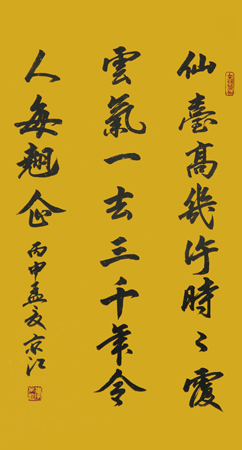 仙臺高幾許時々霞
雲氣一去三千年令
人每翹企
丙申孟夏京江